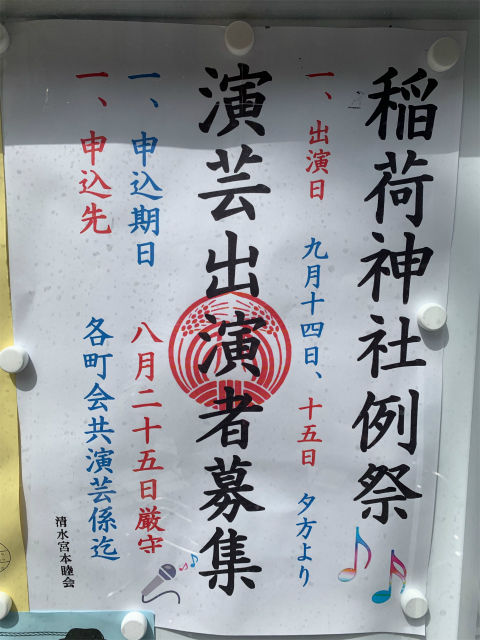 稲荷神社例祭
一、出演日 九月十四日、十五日 夕方より
演芸出演者募集
一、申込期日 八月二十五日厳守
一、申込先 各町会共演芸係迄
清水宮本睦会